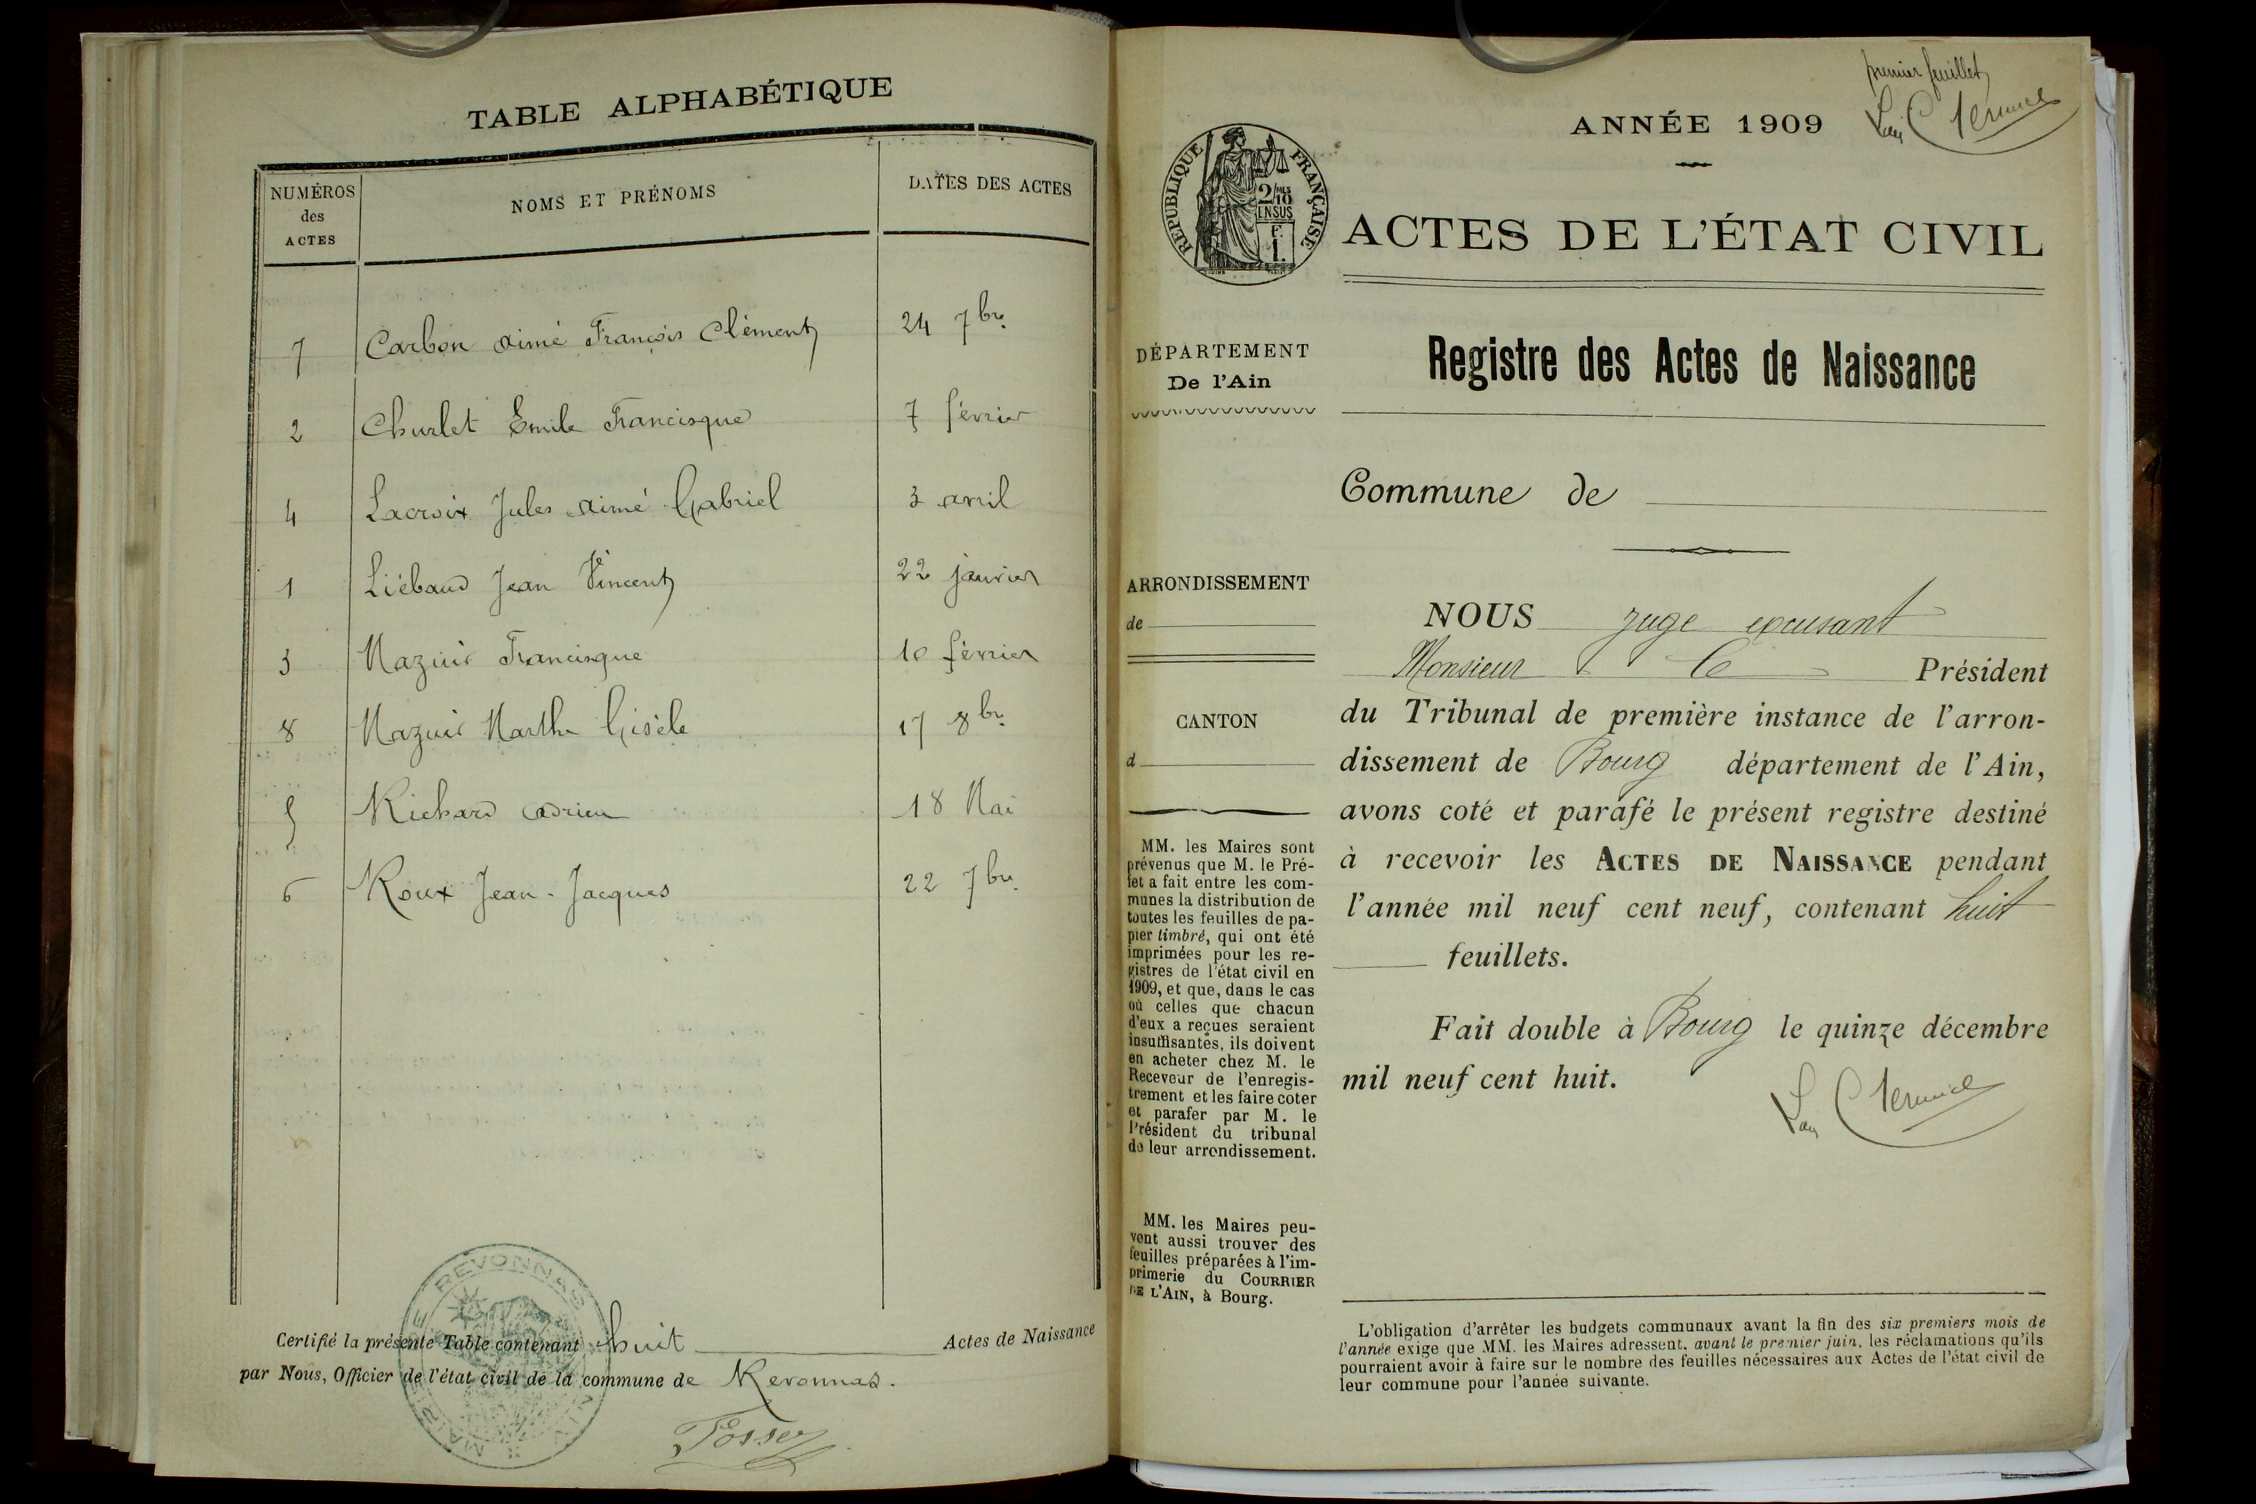 TABLE ALPHABÉTIQUE
NUMÉROS
des
ACTES
NOMS ET PRÉNOMS
DATES DES ACTES
7 Carbon Aimé François Clément 24 7bre
2 Churlet Emile Francisque 7 février
4 Lacroix Jules Aimé Gabriel 3 avril
1 Liébaud Jean Vincent 22 janvier
3 Mazuir Francisque 10 février
8 Mazuir Marthe Gisèle 17 8bre
5 Richard Adrien 18 Mai
6 Roux Jean-Jacques 22 7bre
MAIRIE DE REVONNAS AIN
Certifié la présente Table contenant huit Actes de Naissance
par Nous, Officier de l'état civil de la commune de Revonnas.
premier feuillet
ANNÉE 1909
RÉPUBLIQUE FRANÇAISE
2/10
EN SUS
F.
1.
ACTES DE L'ÉTAT CIVIL
Registre des Actes de Naissance
Commune de
NOUS juge excusant
Monsieur le Président
du Tribunal de première instance de l'arron-
dissement de Bourg département de l'Ain,
avons coté et parafé le présent registre destiné
à recevoir les ACTES DE NAISSANCE pendant
l'année mil neuf cent neuf, contenant huit
feuillets.
Fait double à Bourg le quinze décembre
mil neuf cent huit.
DÉPARTEMENT
De l'Ain
ARRONDISSEMENT
de
CANTON
d
MM. les Maires sont
prévenus que M. le Pré-
fet a fait entre les com-
munes la distribution de
toutes les feuilles de pa-
pier timbré, qui ont été
imprimées pour les re-
gistres de l'état civil en
1909, et que, dans le cas
où celles que chacun
d'eux a reçues seraient
insuffisantes, ils doivent
en acheter chez M. le
Receveur de l'enregis-
trement et les faire coter
et parafer par M. le
Président du tribunal
de leur arrondissement.
MM. les Maires peu-
vent aussi trouver des
feuilles préparées à l'im-
primerie du COURRIER
DE L'AIN, à Bourg.
L'obligation d'arrêter les budgets communaux avant la fin des six premiers mois de
l'année exige que MM. les Maires adressent, avant le premier juin, les réclamations qu'ils
pourraient avoir à faire sur le nombre des feuilles nécessaires aux Actes de l'état civil de
leur commune pour l'année suivante.